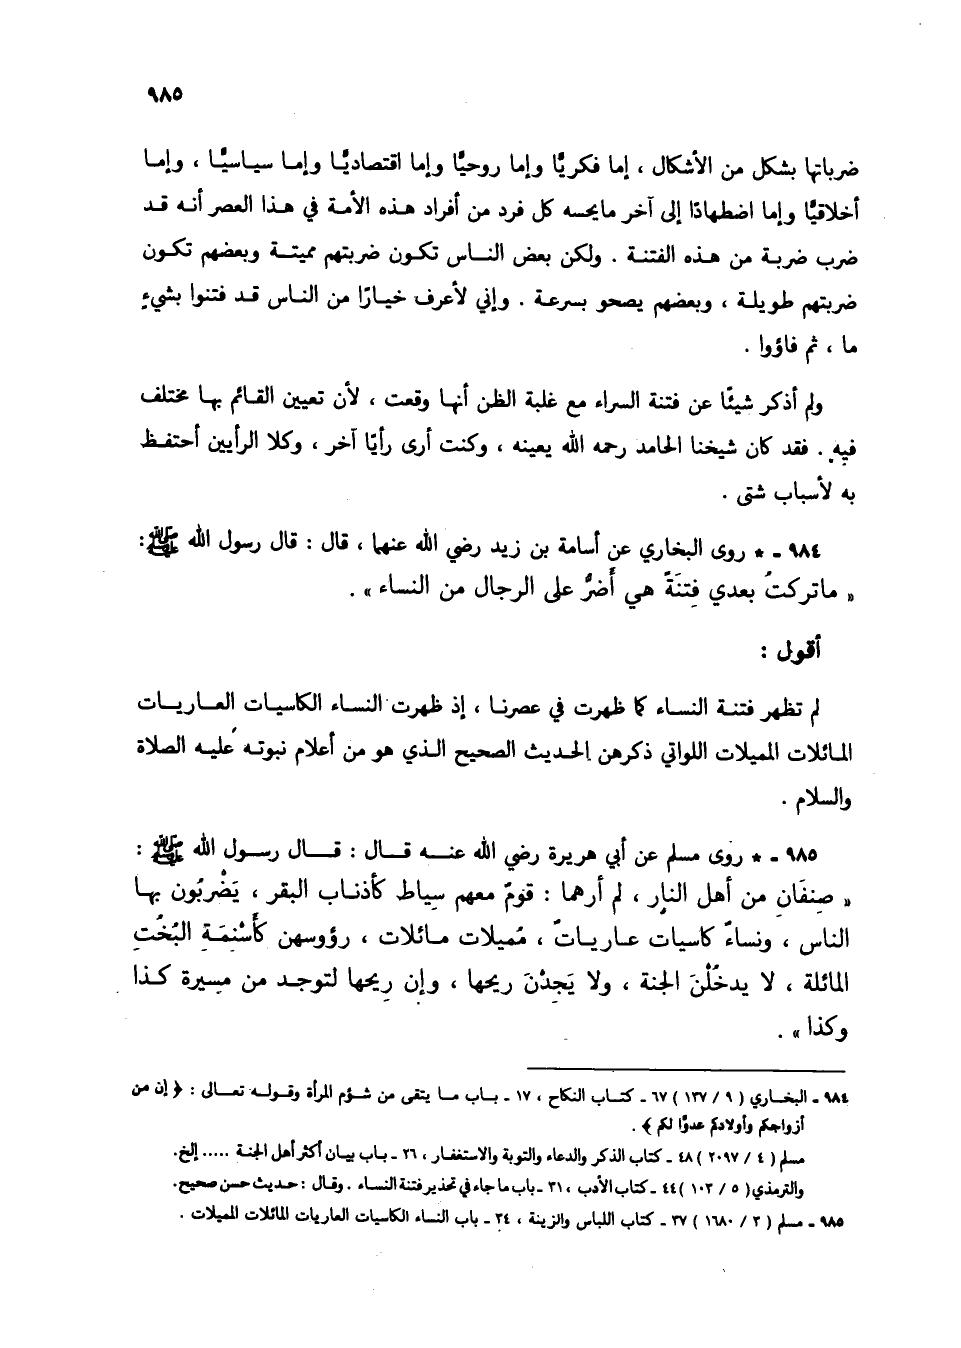 ٩٨٥
ضرباتها بشكل من الأشكال ، إما فكريًّا وإما روحيًّا وإما اقتصاديًّا وإما سياسيًّا ، وإما
أخلاقيًّا وإما اضطهادًا إلى آخر مايحسه كل فرد من أفراد هذه الأمة في هذا العصر أنه قد
ضرب ضربة من هذه الفتنة . ولكن بعض الناس تكون ضربتهم مميتة وبعضهم تكون
ضربتهم طويلة ، وبعضهم يصحو بسرعة . وإني لأعرف خيارًا من الناس قد فتنوا بشيءٍ
ما ، ثم فاؤوا .
ولم أذكر شيئًا عن فتنة السراء مع غلبة الظن أنها وقعت ، لأن تعيين القائم بها مختلف
فيه . فقد كان شيخنا الحامد رحمه الله يعينه ، وكنت أرى رأيًا آخر ، وكلا الرأيين أحتفظ
به لأسباب شتى .
٩٨٤ - * روى البخاري عن أسامة بن زيد رضي الله عنهما ، قال : قال رسول الله ﷺ :
« ماتركتُ بعدي فِتنَةً هي أَضرُّ على الرجال من النساء » .
أقول :
لم تظهر فتنة النساء كما ظهرت في عصرنا ، إذ ظهرت النساء الكاسيات العاريات
المائلات المميلات اللواتي ذكرهن الحديث الصحيح الذي هو من أعلام نبوته عليه الصلاة
والسلام .
٩٨٥ - * روى مسلم عن أبي هريرة رضي الله عنه قال : قال رسول الله ﷺ :
« صِنفَانِ من أهل النار ، لم أرهما : قومٌ معهم سياط كأذناب البقر ، يَضْرِبُون بها
الناس ، ونساءٌ كاسيات عارياتٌ ، مُميلات مائلات ، رؤوسهن كَأَسْنِمَةِ البُخْتِ
المائلة ، لا يدخُلْنَ الجنة ، ولا يَجِدْنَ ريحها ، وإن رِيحها لتوجد من مسيرة كذا
وكذا » .
٩٨٤ - البخاري ( ٩ / ١٣٧ ) ٦٧ - كتاب النكاح ، ١٧ - باب ما يتقى من شؤم المرأة وقوله تعالى : ﴿ إن من
أزواجكم وأولادكم عدوًّا لكم ﴾ .
مسلم ( ٤ / ٢٠٩٧ ) ٤٨ - كتاب الذكر والدعاء والتوبة والاستغفار ، ٢٦ - باب بيان أكثر أهل الجنة ..... إلخ.
والترمذي ( ٥ / ١٠٣ ) ٤٤ - كتاب الأدب ، ٣١ - باب ما جاء في تحذير فتنة النساء . وقال : حديث حسن صحيح.
٩٨٥ - مسلم ( ٣ / ١٦٨٠ ) ٣٧ - كتاب اللباس والزينة ، ٣٤ - باب النساء الكاسيات العاريات المائلات المميلات .